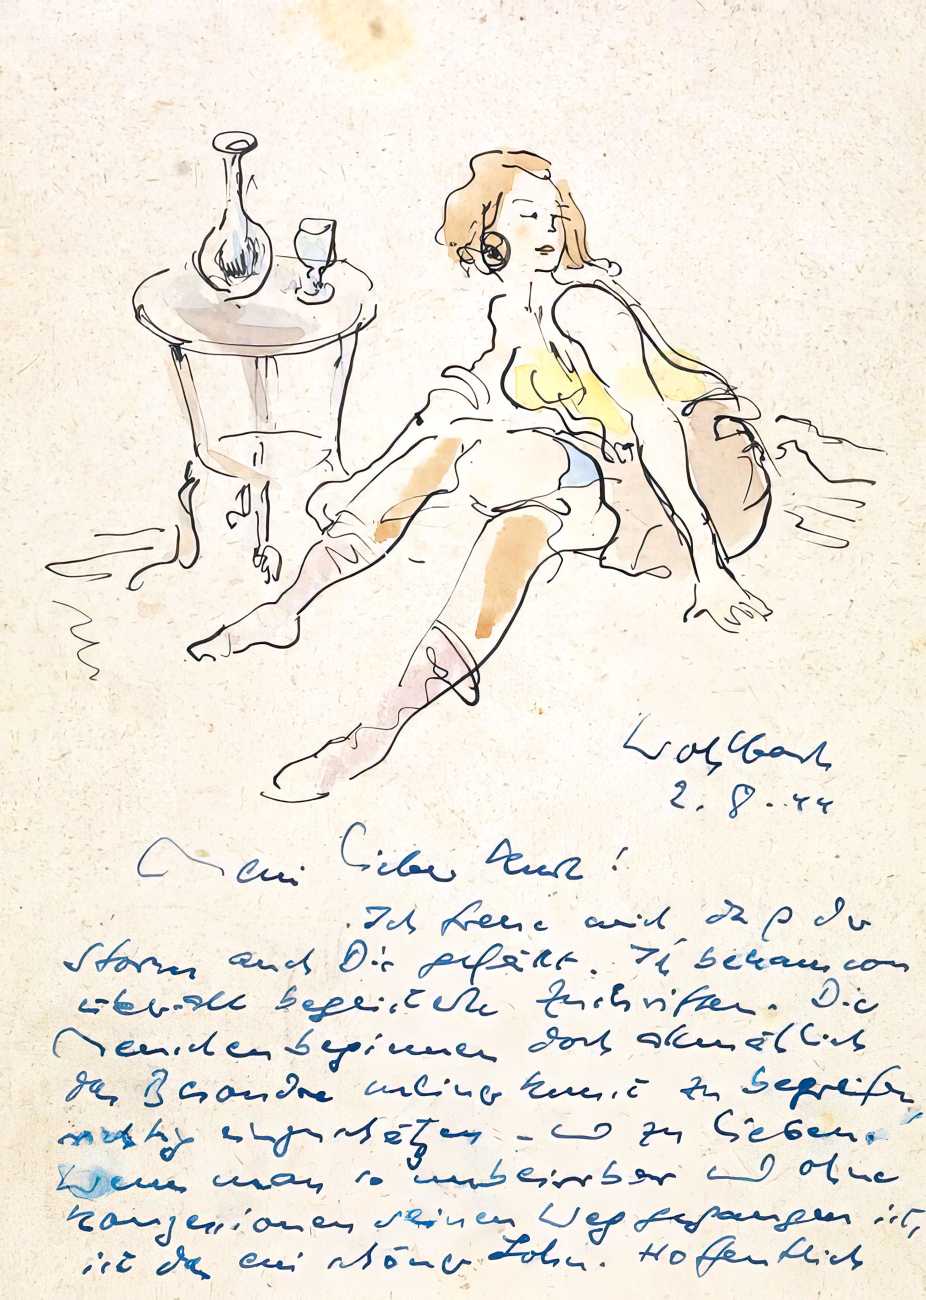 2.8.44
Mein lieber Kurt!
Ich freue mich daß der
Storm auch Dir gefällt. Ich bekam von
überall begeisterte Zuschriften. Die
Menschen beginnen doch allmählich
das Besondre meiner Kunst zu begreifen
richtig einzuschätzen – und zu lieben.
Wenn man so unbeirrbar und ohne
Konzessionen seinen Weg gegangen ist,
ist das ein schöner Lohn. Hoffentlich